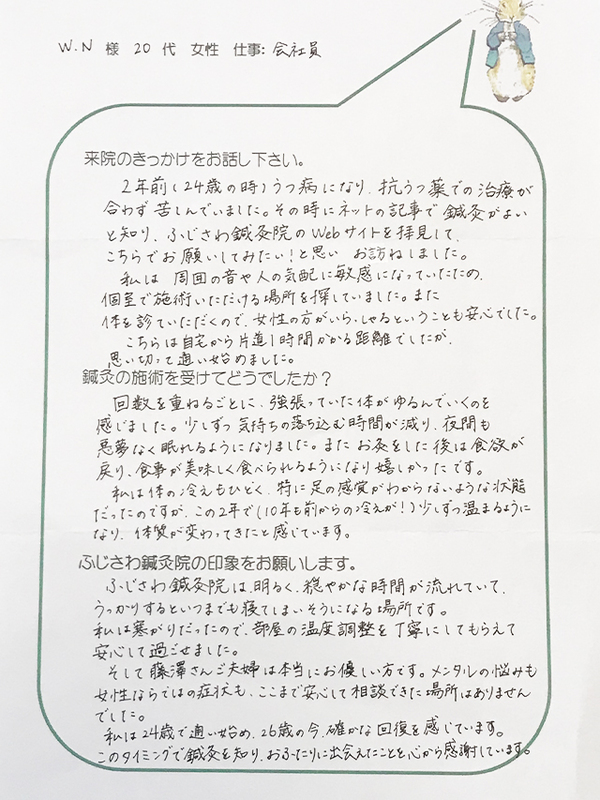 W.N 様 20 代 女性 仕事: 会社員
来院のきっかけをお話し下さい。
2年前(24歳の時)うつ病になり、抗うつ薬での治療が
合わず苦しんでいました。その時にネットの記事で鍼灸がよい
と知り、ふじさわ鍼灸院のWebサイトを拝見して、
こちらでお願いしてみたい!と思い お訪ねしました。
私は 周囲の音や人の気配に敏感になっていたため、
個室で施術いただける場所を探していました。また
体を診ていただくので、女性の方がいらっしゃるということも安心でした。
こちらは自宅から片道1時間かかる距離でしたが、
思い切って通い始めました。
鍼灸の施術を受けてどうでしたか?
回数を重ねるごとに、強張っていた体がゆるんでいくのを
感じました。少しずつ気持ちの落ち込む時間が減り、夜間も
悪夢なく眠れるようになりました。またお灸をした後は食欲が
戻り、食事が美味しく食べられるようになり嬉しかったです。
私は体の冷えもひどく、特に足の感覚がわからないような状態
だったのですが、この2年で(10年も前からの冷えが!)少しずつ温まるように
なり、体質が変わってきたと感じています。
ふじさわ鍼灸院の印象をお願いします。
ふじさわ鍼灸院は、明るく、穏やかな時間が流れていて、
うっかりするといつまでも寝てしまいそうになる場所です。
私は寒がりだったので、部屋の温度調整を丁寧にしてもらえて
安心して過ごせました。
そして藤澤さんご夫婦は本当にお優しい方です。メンタルの悩みも
女性ならではの症状も、ここまで安心して相談できた場所はありません
でした。
私は24歳で通い始め、26歳の今、確かな回復を感じています。
このタイミングで鍼灸を知り、おふたりに出会えたことを心から感謝しています。